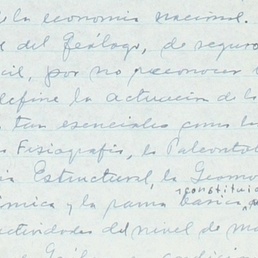 de la economía nacional.
del Geólogo, de seguro
cil, por no reconocer
define la actuación de lo
tan esenciales como la
Fisiografía, la Paleontol
Estructural, la Geomo
constituid
mica y la rama básica
actividades del nivel de ma